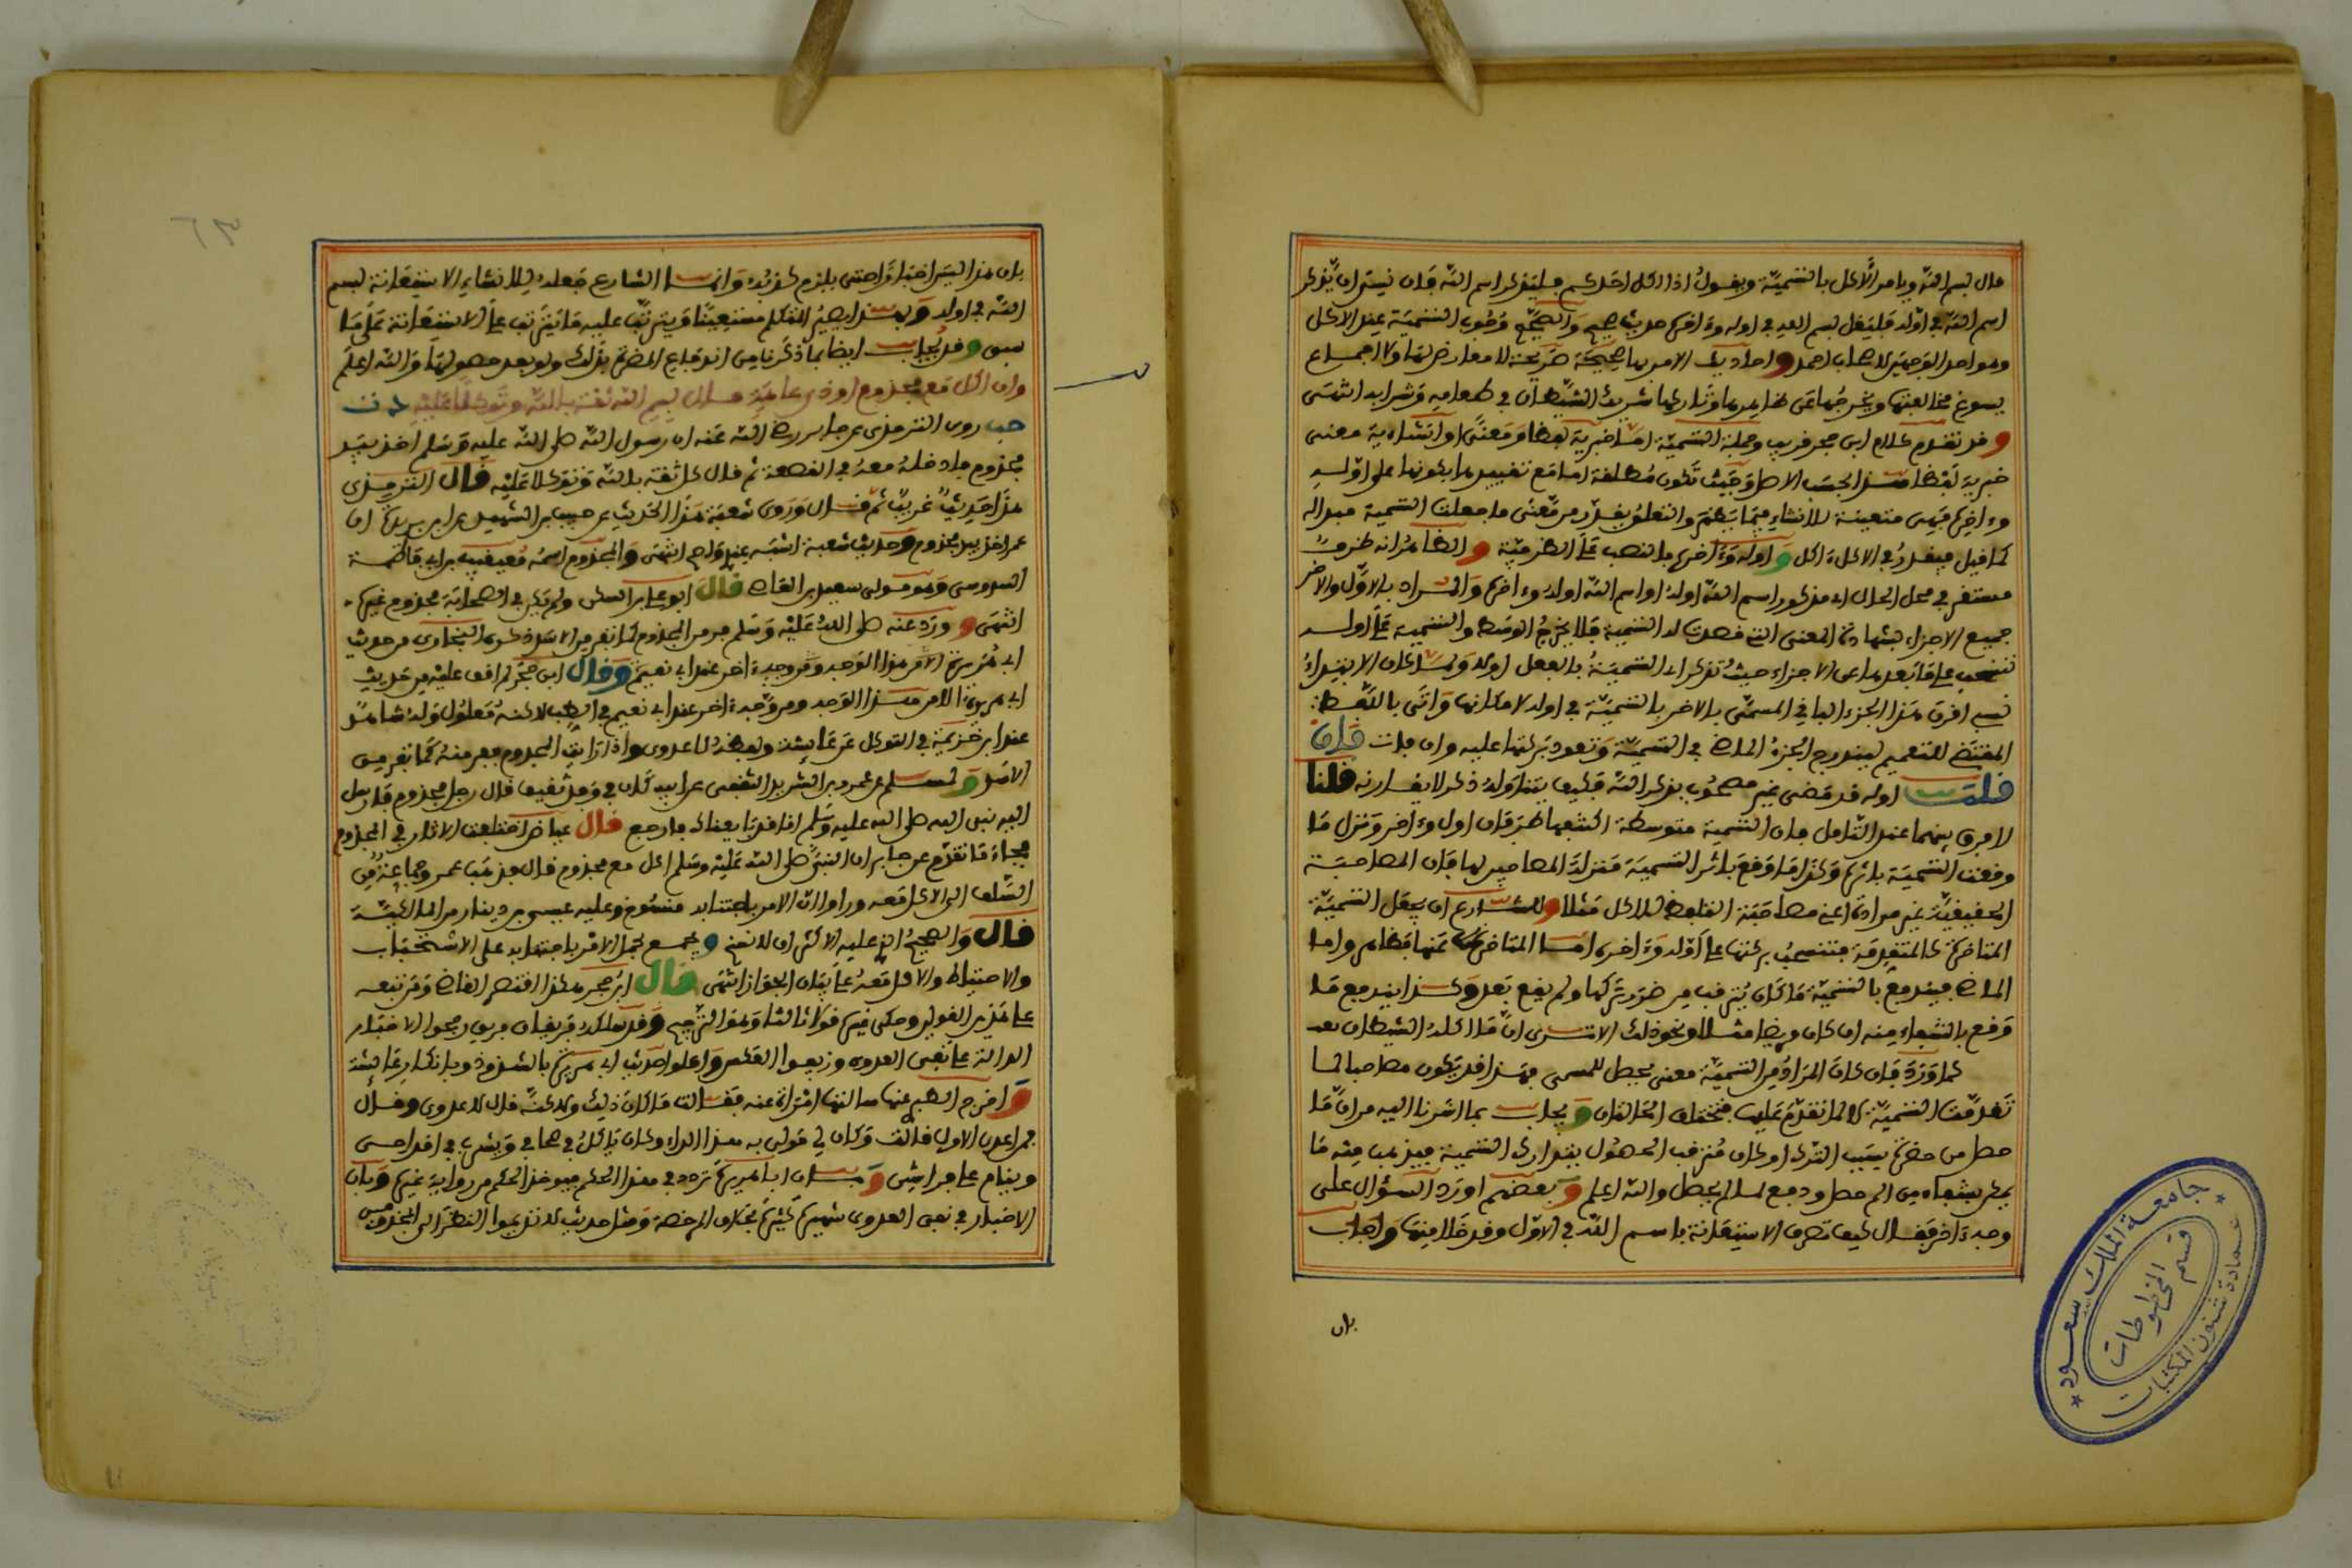 قال بسم الله ويامر الاكل بالتسمية ويقول اذا اكل احدكم فليذكر اسم الله فان نسي ان يذكر
اسم الله في اوله فليقل بسم الله في اوله وءاخره حديث صحيح والصحيح وجوب التسمية عند الاكل
وهو احد الوجهين لاصحاب احمد واحاديث الامر بها صحيحة صريحة لا معارض لها ولا اجماع
يسوغ مخالفتها ويخرجها عن ظاهرها وتاركها شريك الشيطان في طعامه وشرابه انتهى
وقد تقدم كلام ابن حجر قريب وجملة التسمية اما خبرية لفظا ومعنى او انشاءية معنى
خبرية لفظا هذا بحسب الاصل وحيث تكون مطلقة اما مع تقييدها بكونها على اوله
وءاخره فهي متعينة للانشاء
كما قيل فيقدر في الاكل ءاكل واوله وءاخره بالنصب على الظرفية والظاهر انه ظرف
مستقر في محل الحال اي مذكور اسم الله اوله او اسم الله اوله وءاخره والمراد بالاول والاخر
جميع الاجزاء بشهادة المعنى الذي قصدت له التسمية فلا يخرج الوسط والتسمية على اوله
تنسحب على ما بعدها من الاجزاء حيث تذكر اي التسمية بالفعل اوله ولما كان الابتداء
نسيه افرق هذا الجزء الباقي المسمى بالاخر بالتسمية في اوله لامكانها واتى باللفظ
المقتضي للتعميم ليندرج الجزء الماضي في التسمية وتعود بركتها عليه وان فات فان
قلت اوله قد مضى غير مصحوب بذكر الله فكيف يتناوله ذكر لا يقارنه قلنا
لا فرق بينهما عند التامل فان التسمية متوسطة اكتنفها طرفان اول وءاخر ونزل ما
وقعت التسمية باثره وكذا ما وقع باثر التسمية منزلة المصاحب لها فان المصاحبة
الحقيقية غير مرادة اعني مصاحبة التلفظ للاكل مثلا وللشارع ان يجعل التسمية
المتاخرة كالمتقدمة فتنسحب بركتها على اوله وءاخره اما المتاخر عنها فظاهر واما
الماضي فيندفع بالتسمية ما كان يترقب من ضرورة تركها ولم يقع بعد وكذا يندفع ما
وقع بالشفاء منه ان كان مرضا مثلا ونحو ذلك الا ترى ان ما اكله الشيطان بعد
كما ورد فان كان المراد من التسمية معنى يحصل للمسمى فهذا قد يكون مصاحبا لما
تقدمت التسمية كالما تقدم عليها فتختلف الحالتان ويجاب بما اشرنا اليه من ان ما
حصل من ضرره بسبب الترك او كان مترقب الحصول بتدارك التسمية فيذهب منه ما
يمكن بشفاء من الم حصل ودفع لما لم يحصل والله اعلم وبعضهم اورد السؤال على
وجه ءاخر فقال كيف تصرف الاستعانة باسم الله في الاول وقد خلا منها واجاب
بان
بان هذا ليس اخبارا حتى يلزم كذبه وانما الشارع جعله للانشاء الاستعانة بسم
الله في اوله وبهذا يصير المتكلم مستعينا ويترتب عليه ما يترتب على الاستعانة على ما
سبق وقد يجاب ايضا بما ذكرنا من اندفاع المضرة بذلك ولو بعد حصولها والله اعلم
وان اكل مع مجذوم او ذي عاهة قال بسم الله ثقة بالله وتوكلا عليه د ت
حب روى الترمذي عن جابر رضي الله عنه ان رسول الله صلى الله عليه وسلم اخذ بيد
مجذوم فادخله معه في القصعة ثم قال كل ثقة بالله وتوكلا عليه قال الترمذي
هذا حديث غريب ثم قال وروى شعبة هذا الحديث عن حبيب بن الشهيد عن ابن بريدة ان
عمر اخذ بيد مجذوم وحديث شعبة اشبه عندي واصح انتهى والمجذوم اسمه معيقيب بن ابي فاطمة
الدوسي وهو مولى سعيد بن العاص قال ابو علي بن السكن ولم يكن في الصحابة مجذوم غيره
انتهى وورد عنه صلى الله عليه وسلم فر من المجذوم كما تفر من الاسد ذكره البخاري من حديث
ابي هريرة الا من هذا الوجه ومن وجه ءاخر عند ابي نعيم وقال ابن حجر لم اقف عليه من حديث
ابي هريرة الا من هذا الوجه ومن وجه ءاخر عند ابي نعيم في الطب لكنه معلول وله شاهد
عند ابن خزيمة في التوكل عن عائشة ولفظه لا عدوى واذا رايت المجذوم ففر منه كما تفر من
الاسد ولمسلم عن عمرو بن الشريد الثقفي عن ابيه كان في وفد ثقيف قال رجل مجذوم فارسل
اليه نبي الله صلى الله عليه وسلم انا قد بايعناك فارجع قال عياض اختلفت الاثار في المجذوم
فجاء ما تقدم عن جابر ان النبي صلى الله عليه وسلم اكل مع مجذوم قال فذهب عمر وجماعة من
السلف الى الاكل معه وراوا ان الامر باجتنابه منسوخ وعليه عيسى بن دينار من المالكية
قال والصحيح الذي عليه الاكثر ان لا نسخ ويجمع بحمل الامر باجتنابه على الاستحباب
والاحتياط والاكل معه على بيان الجواز انتهى قال ابن حجر هكذا اقتصر القاضي ومن تبعه
على هذين القولين وحكى غيره قولا ثالثا وهو الترجيح وقد سلكه فريقان فريق رجحوا الاخبار
الدالة على نفي العدوى وزيفوا العكس واعلوا حديث ابي هريرة بالشذوذ وبانكار عائشة
واخرج الطبري عنها سالتها امراة عنه فقالت ما كان ذلك ولكنه قال لا عدوى وقال
فمن اعدى الاول قالت وكان لي مولى به هذا الداء وكان ياكل في صحافي ويشرب في اقداحي
وينام على فراشي وبان ابا هريرة تردد في هذا الحكم فيوخذ الحكم من رواية غيره وبان
الاخبار في نفي العدوى شهيرة كثيرة بخلاف الرخصة ومثل حديث لا تديموا النظر الى المجذومين
جامعة الملك سعود
قسم المخطوطات
عمادة شئون المكتبات